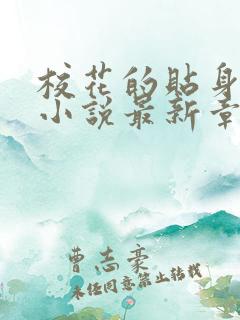 校花的貼身
小說最新章
曹志豪
未经同意禁止转载